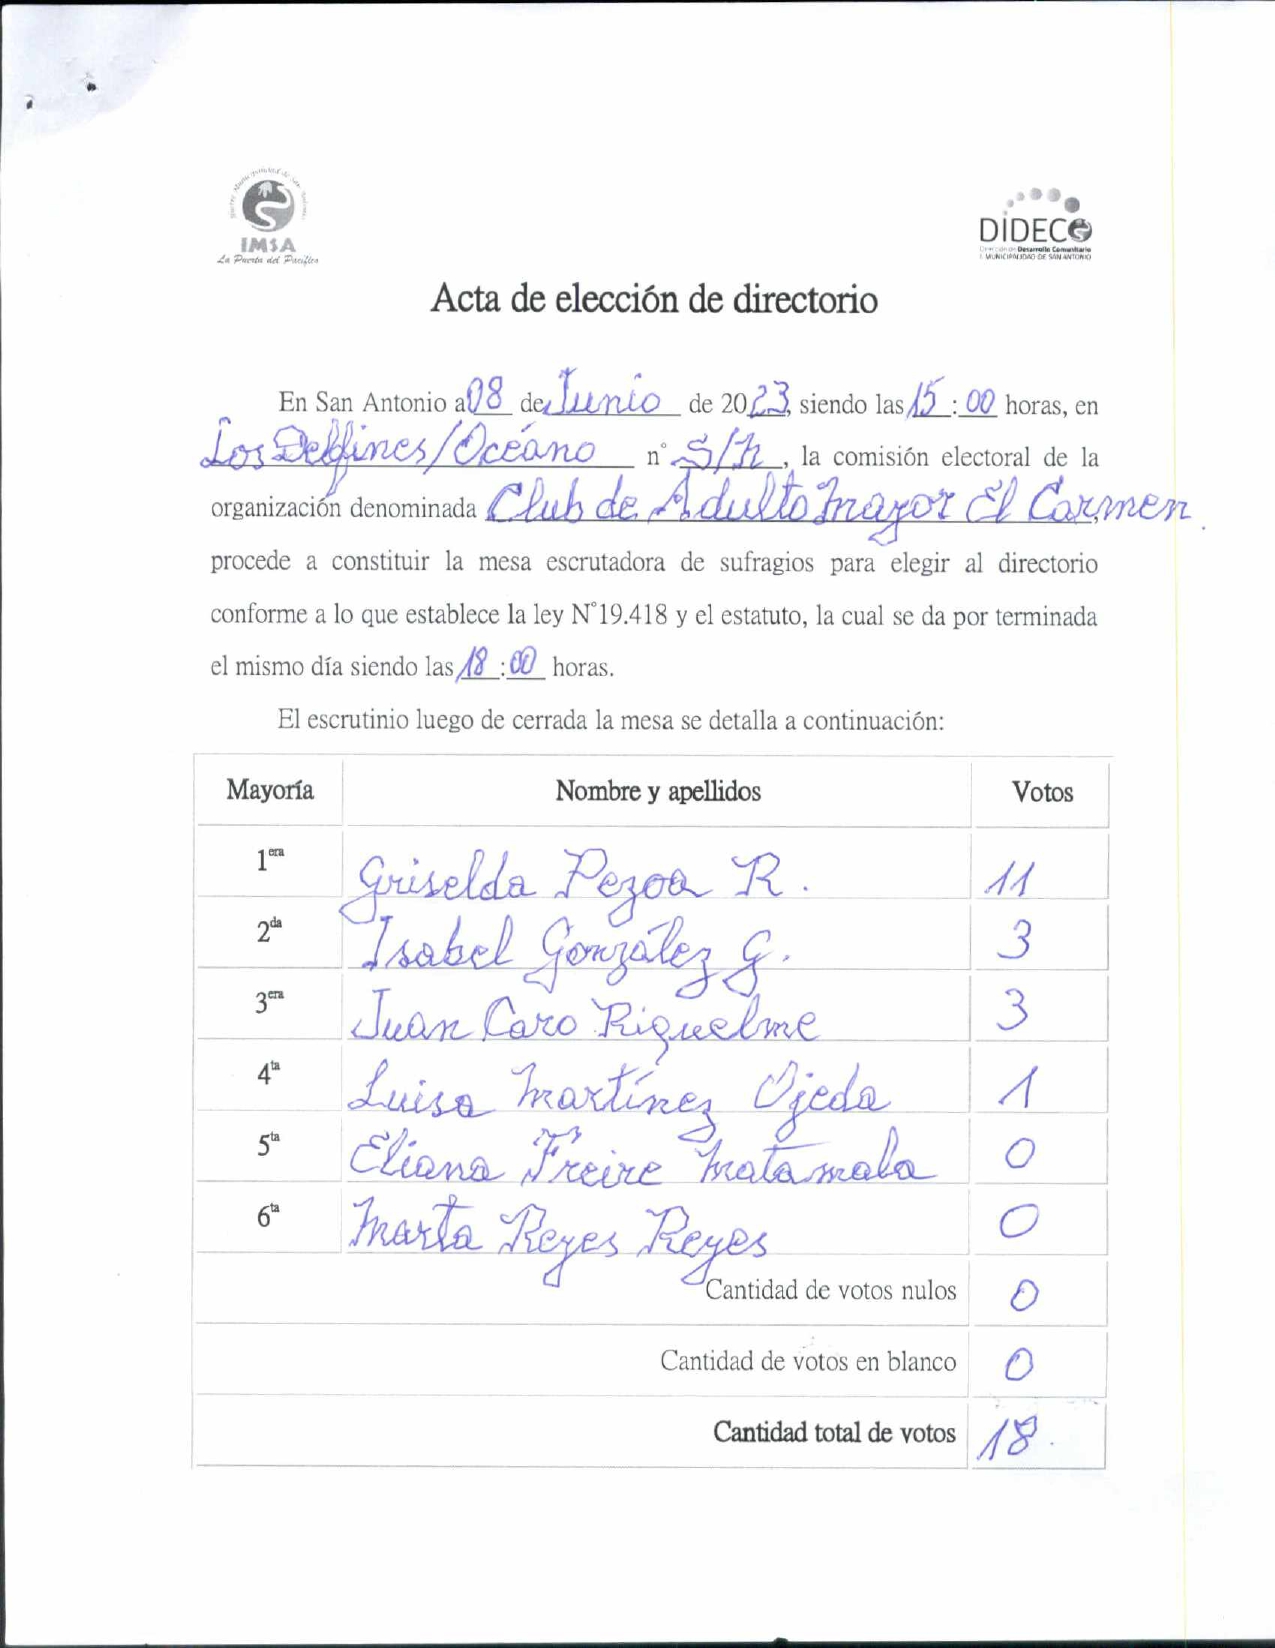 IMSA
La Puerta del Pacífico
DIDECO
Dirección de Desarrollo Comunitario
I. MUNICIPALIDAD DE SAN ANTONIO
Acta de elección de directorio
En San Antonio a 08 de Junio de 2023, siendo las 15:00 horas, en
Los Delfines/Océano n° S/n, la comisión electoral de la
organización denominada Club de Adulto Mayor El Carmen,
procede a constituir la mesa escrutadora de sufragios para elegir al directorio
conforme a lo que establece la ley N°19.418 y el estatuto, la cual se da por terminada
el mismo día siendo las 18:00 horas.
El escrutinio luego de cerrada la mesa se detalla a continuación:
Mayoría Nombre y apellidos Votos
1era Griselda Pezoa R. 11
2da Isabel González G. 3
3era Juan Caro Riquelme 3
4ta Luisa Martínez Ojeda 1
5ta Eliana Freire Matamala 0
6ta Marta Reyes Reyes 0
Cantidad de votos nulos 0
Cantidad de votos en blanco 0
Cantidad total de votos 18.